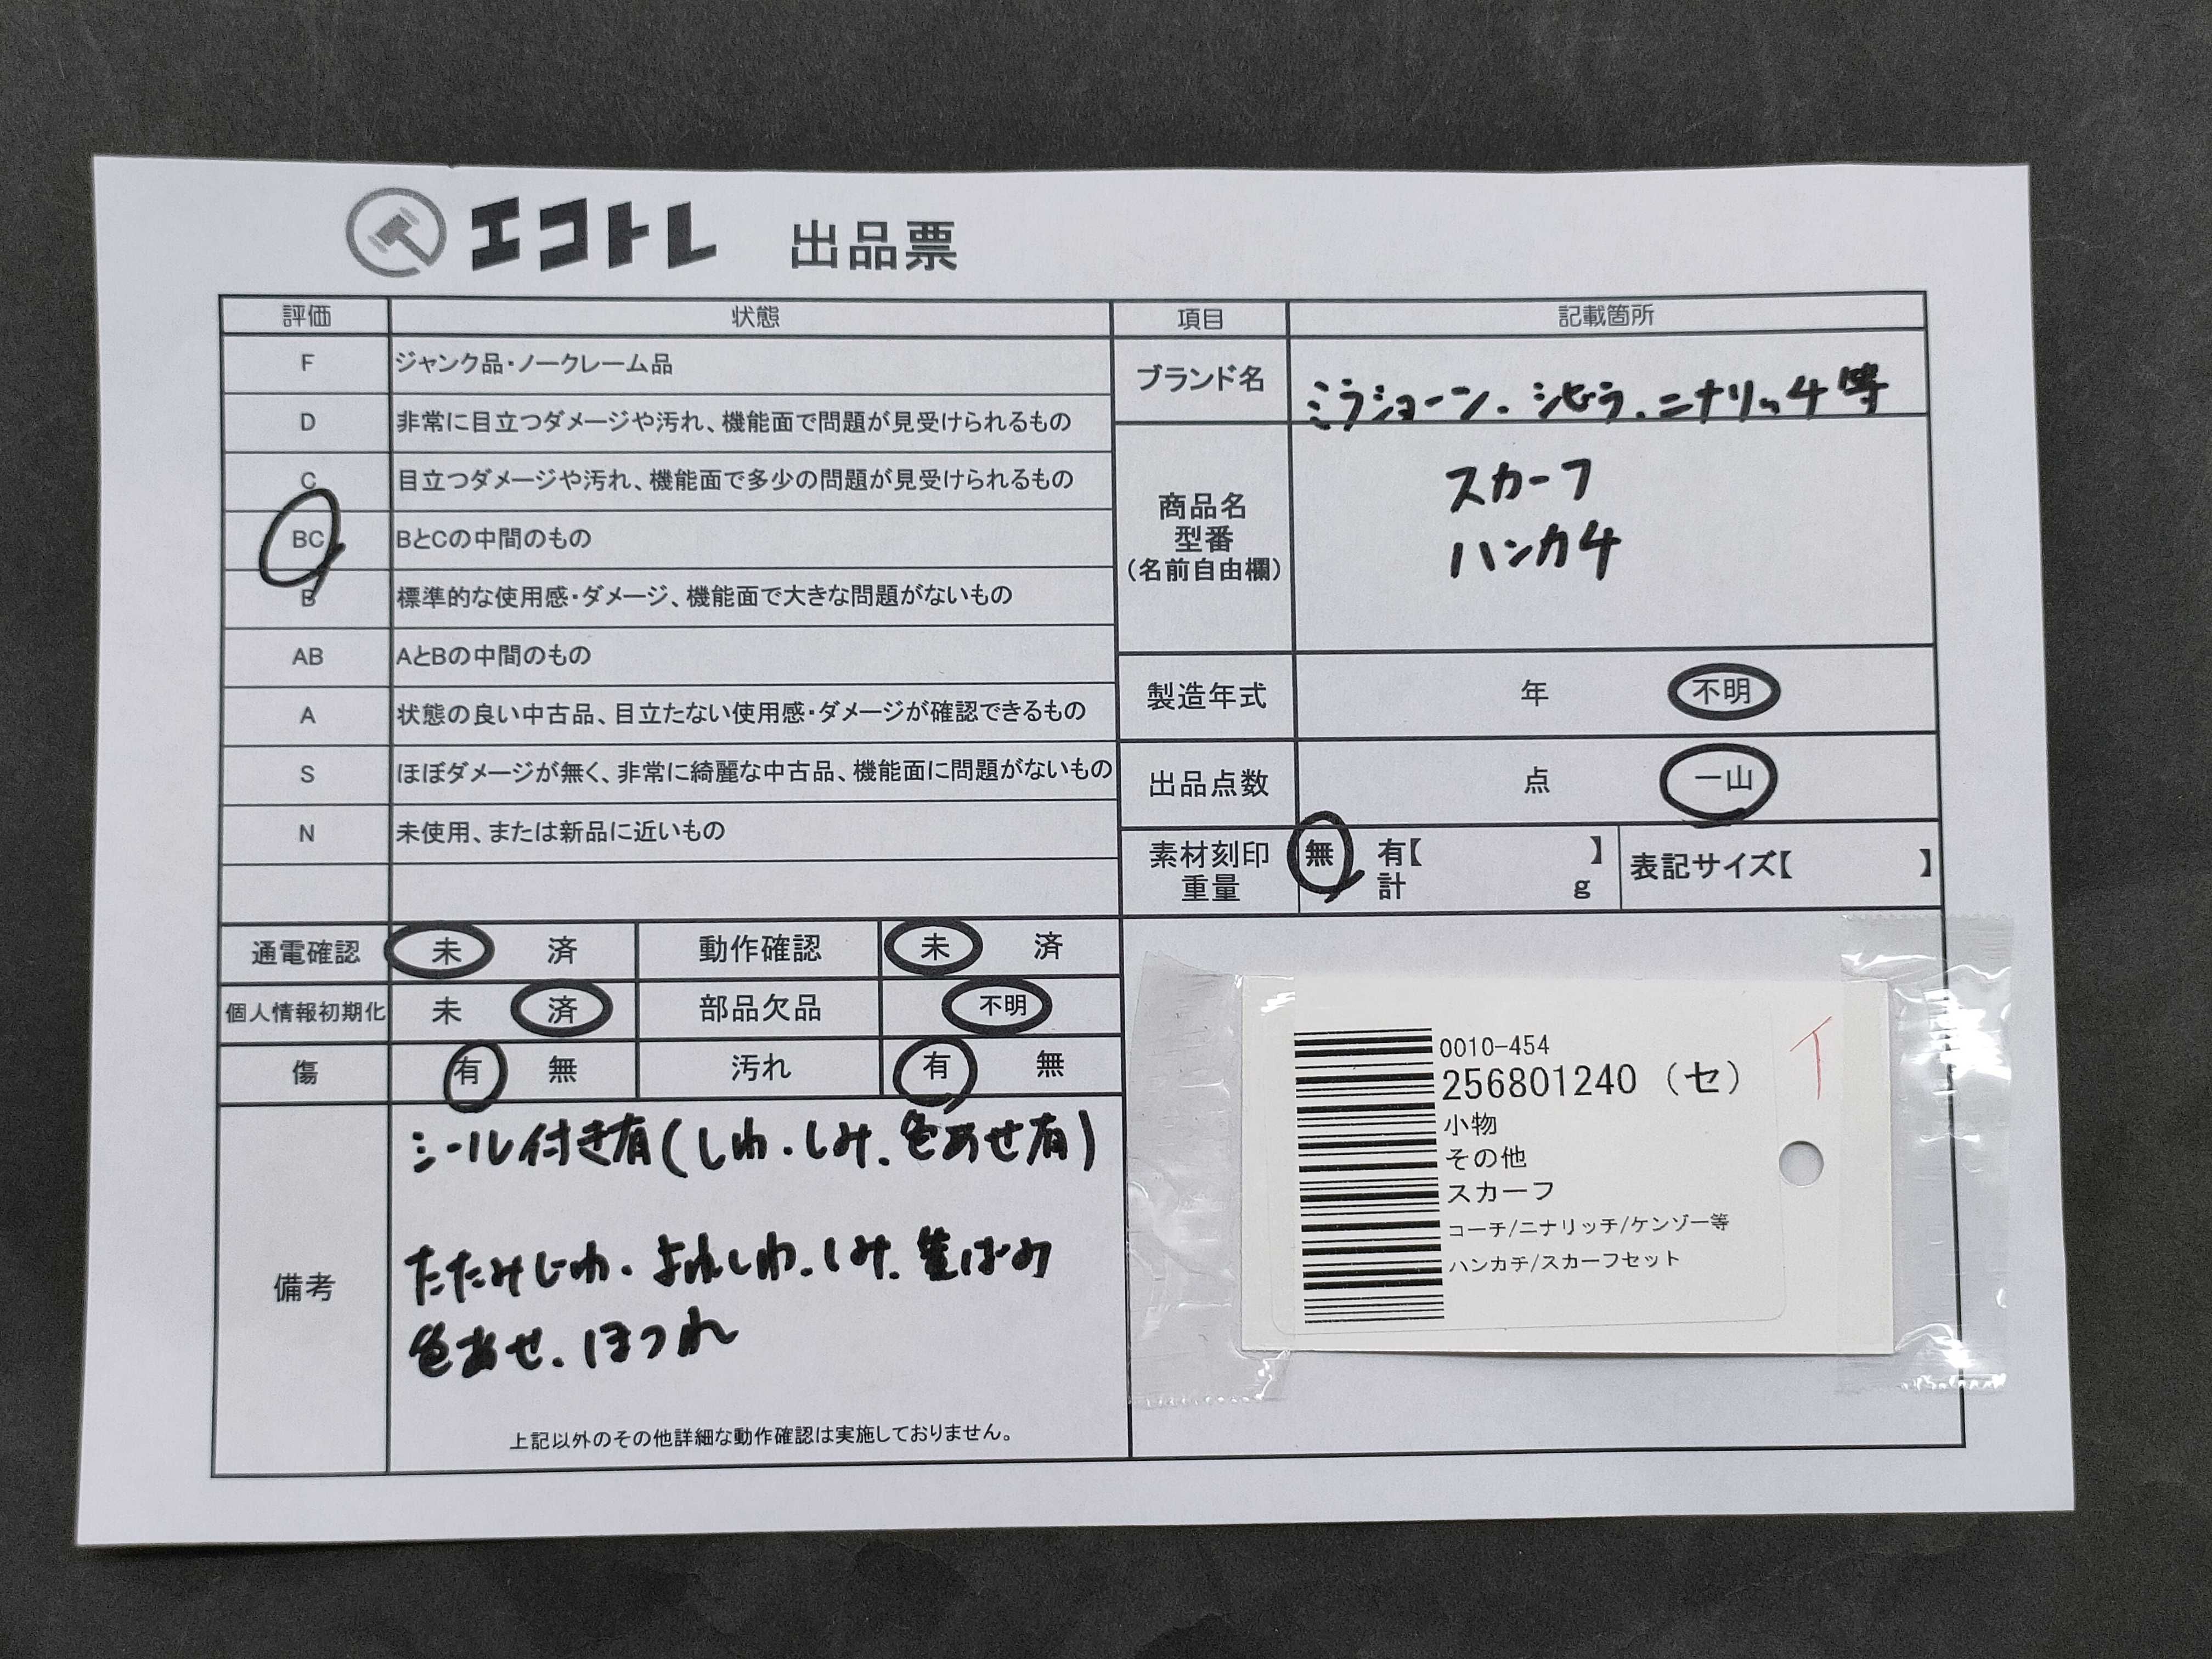 エコトレ 出品票
評価 状態
F ジャンク品・ノークレーム品
D 非常に目立つダメージや汚れ、機能面で問題が見受けられるもの
C 目立つダメージや汚れ、機能面で多少の問題が見受けられるもの
BC BとCの中間のもの
B 標準的な使用感・ダメージ、機能面で大きな問題がないもの
AB AとBの中間のもの
A 状態の良い中古品、目立たない使用感・ダメージが確認できるもの
S ほぼダメージが無く、非常に綺麗な中古品、機能面に問題がないもの
N 未使用、または新品に近いもの
項目 記載箇所
ブランド名 ミラショーン.シビラ.ニナリッチ等
商品名
型番
(名前自由欄)
スカーフ
ハンカチ
製造年式 年 不明
出品点数 点 一山
素材刻印 無 有【 】
重量 計 g
表記サイズ【 】
通電確認 未 済 動作確認 未 済
個人情報初期化 未 済 部品欠品 不明
傷 有 無 汚れ 有 無
備考
シール付き有(しわ.しみ.色あせ有)
たたみじわ.よれしわ.しみ.黄ばみ
色あせ.ほつれ
上記以外のその他詳細な動作確認は実施しておりません。
0010-454
256801240(セ)
小物
その他
スカーフ
コーチ/ニナリッチ/ケンゾー等
ハンカチ/スカーフセット